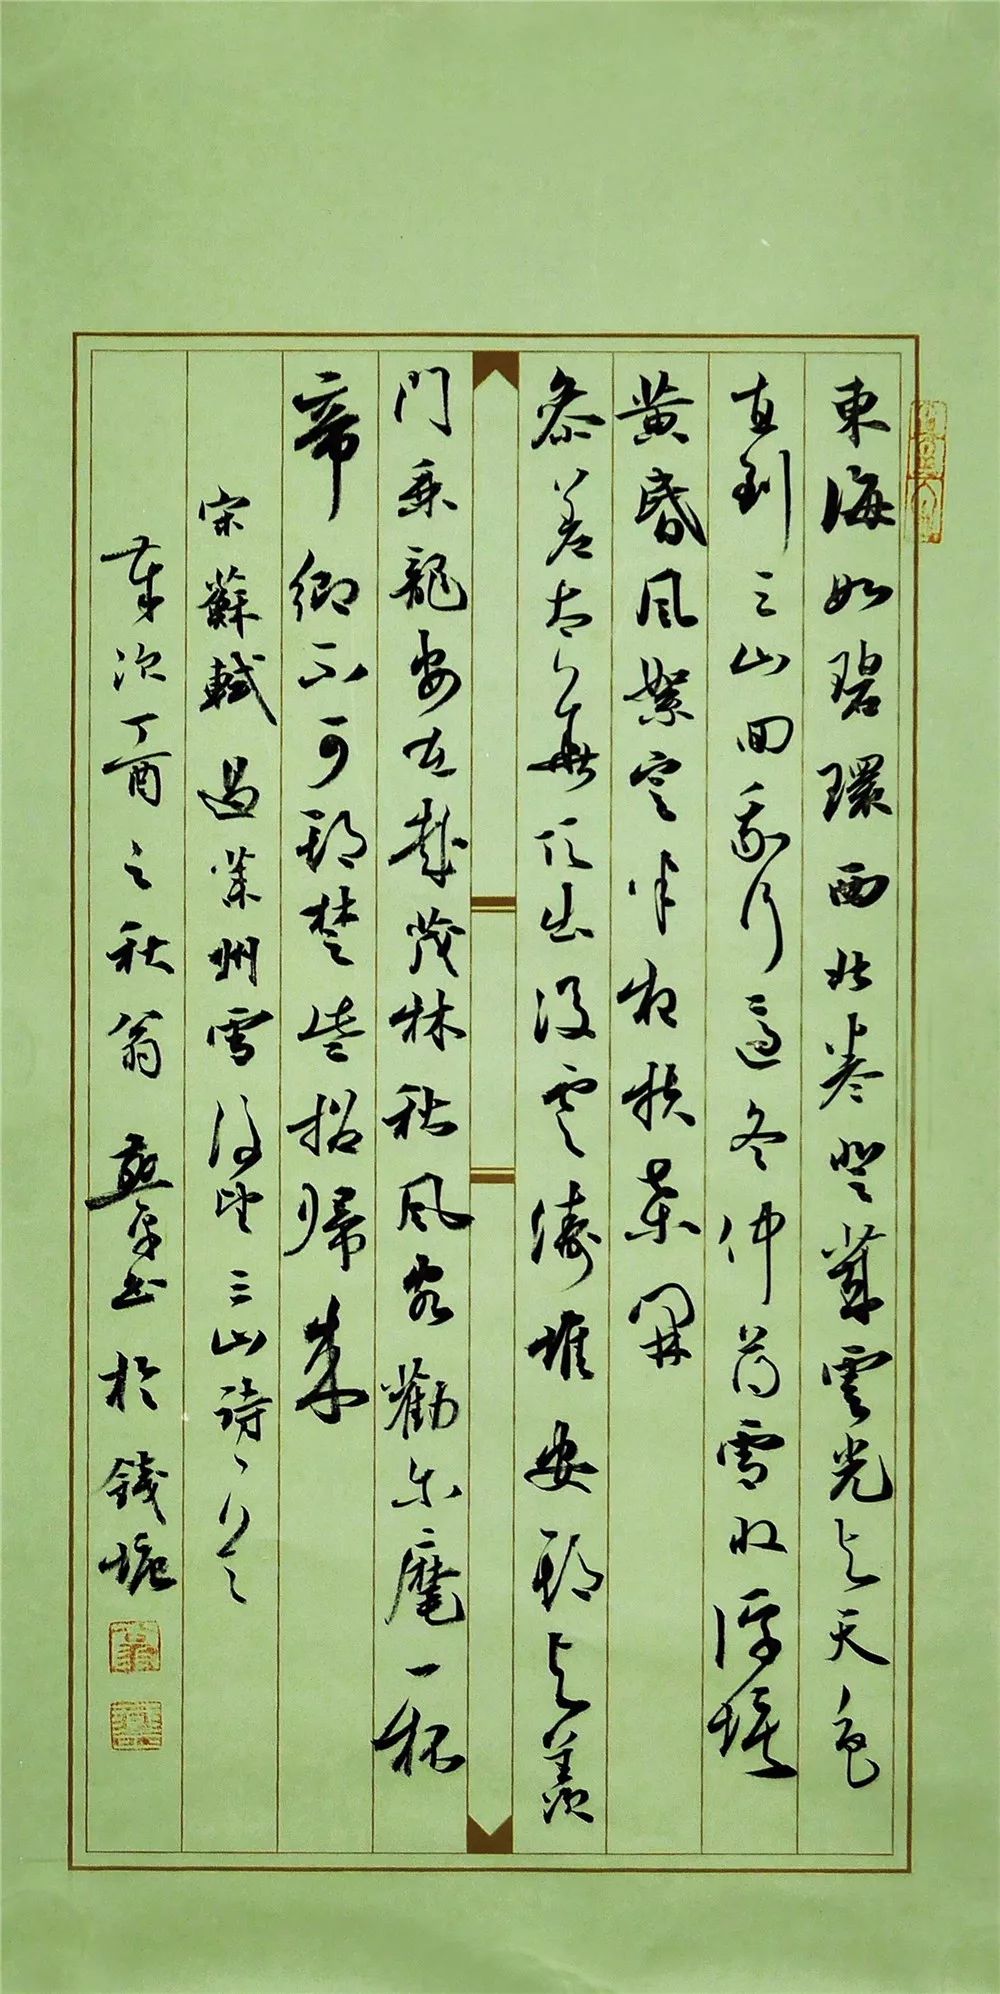 東海如碧環西北卷登萊雲光与天色
直到三山回我行適冬仲薄雪收浮埃
黄昏風絮定半夜扶桑開
參差太華頂出沒雲濤堆安期与羨
門乘龍安在哉茂林秋風客勸尔麾一杯
帝鄉不可期楚些招歸來
宋蘇軾過萊州雪後望三山詩
歲次丁酉之秋翁書於錢塘